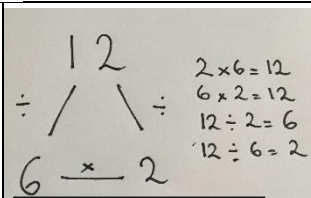 12
÷ ÷
6 × 2
2 × 6 = 12
6 × 2 = 12
12 ÷ 2 = 6
12 ÷ 6 = 2